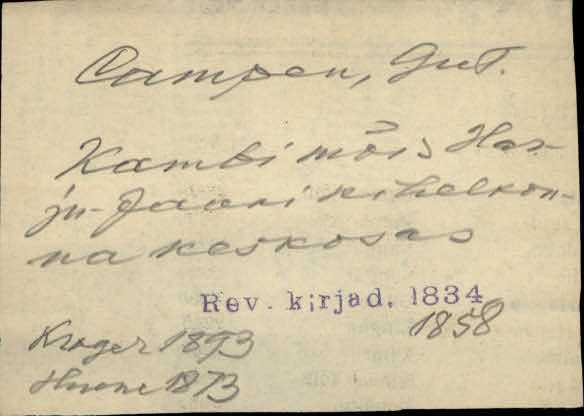 Campen, Gut.
Kambi mõis Har-
ju-Jaani kihelkon-
na keskosas
Rev. kirjad. 1834
1858
Kroger 1893
1873